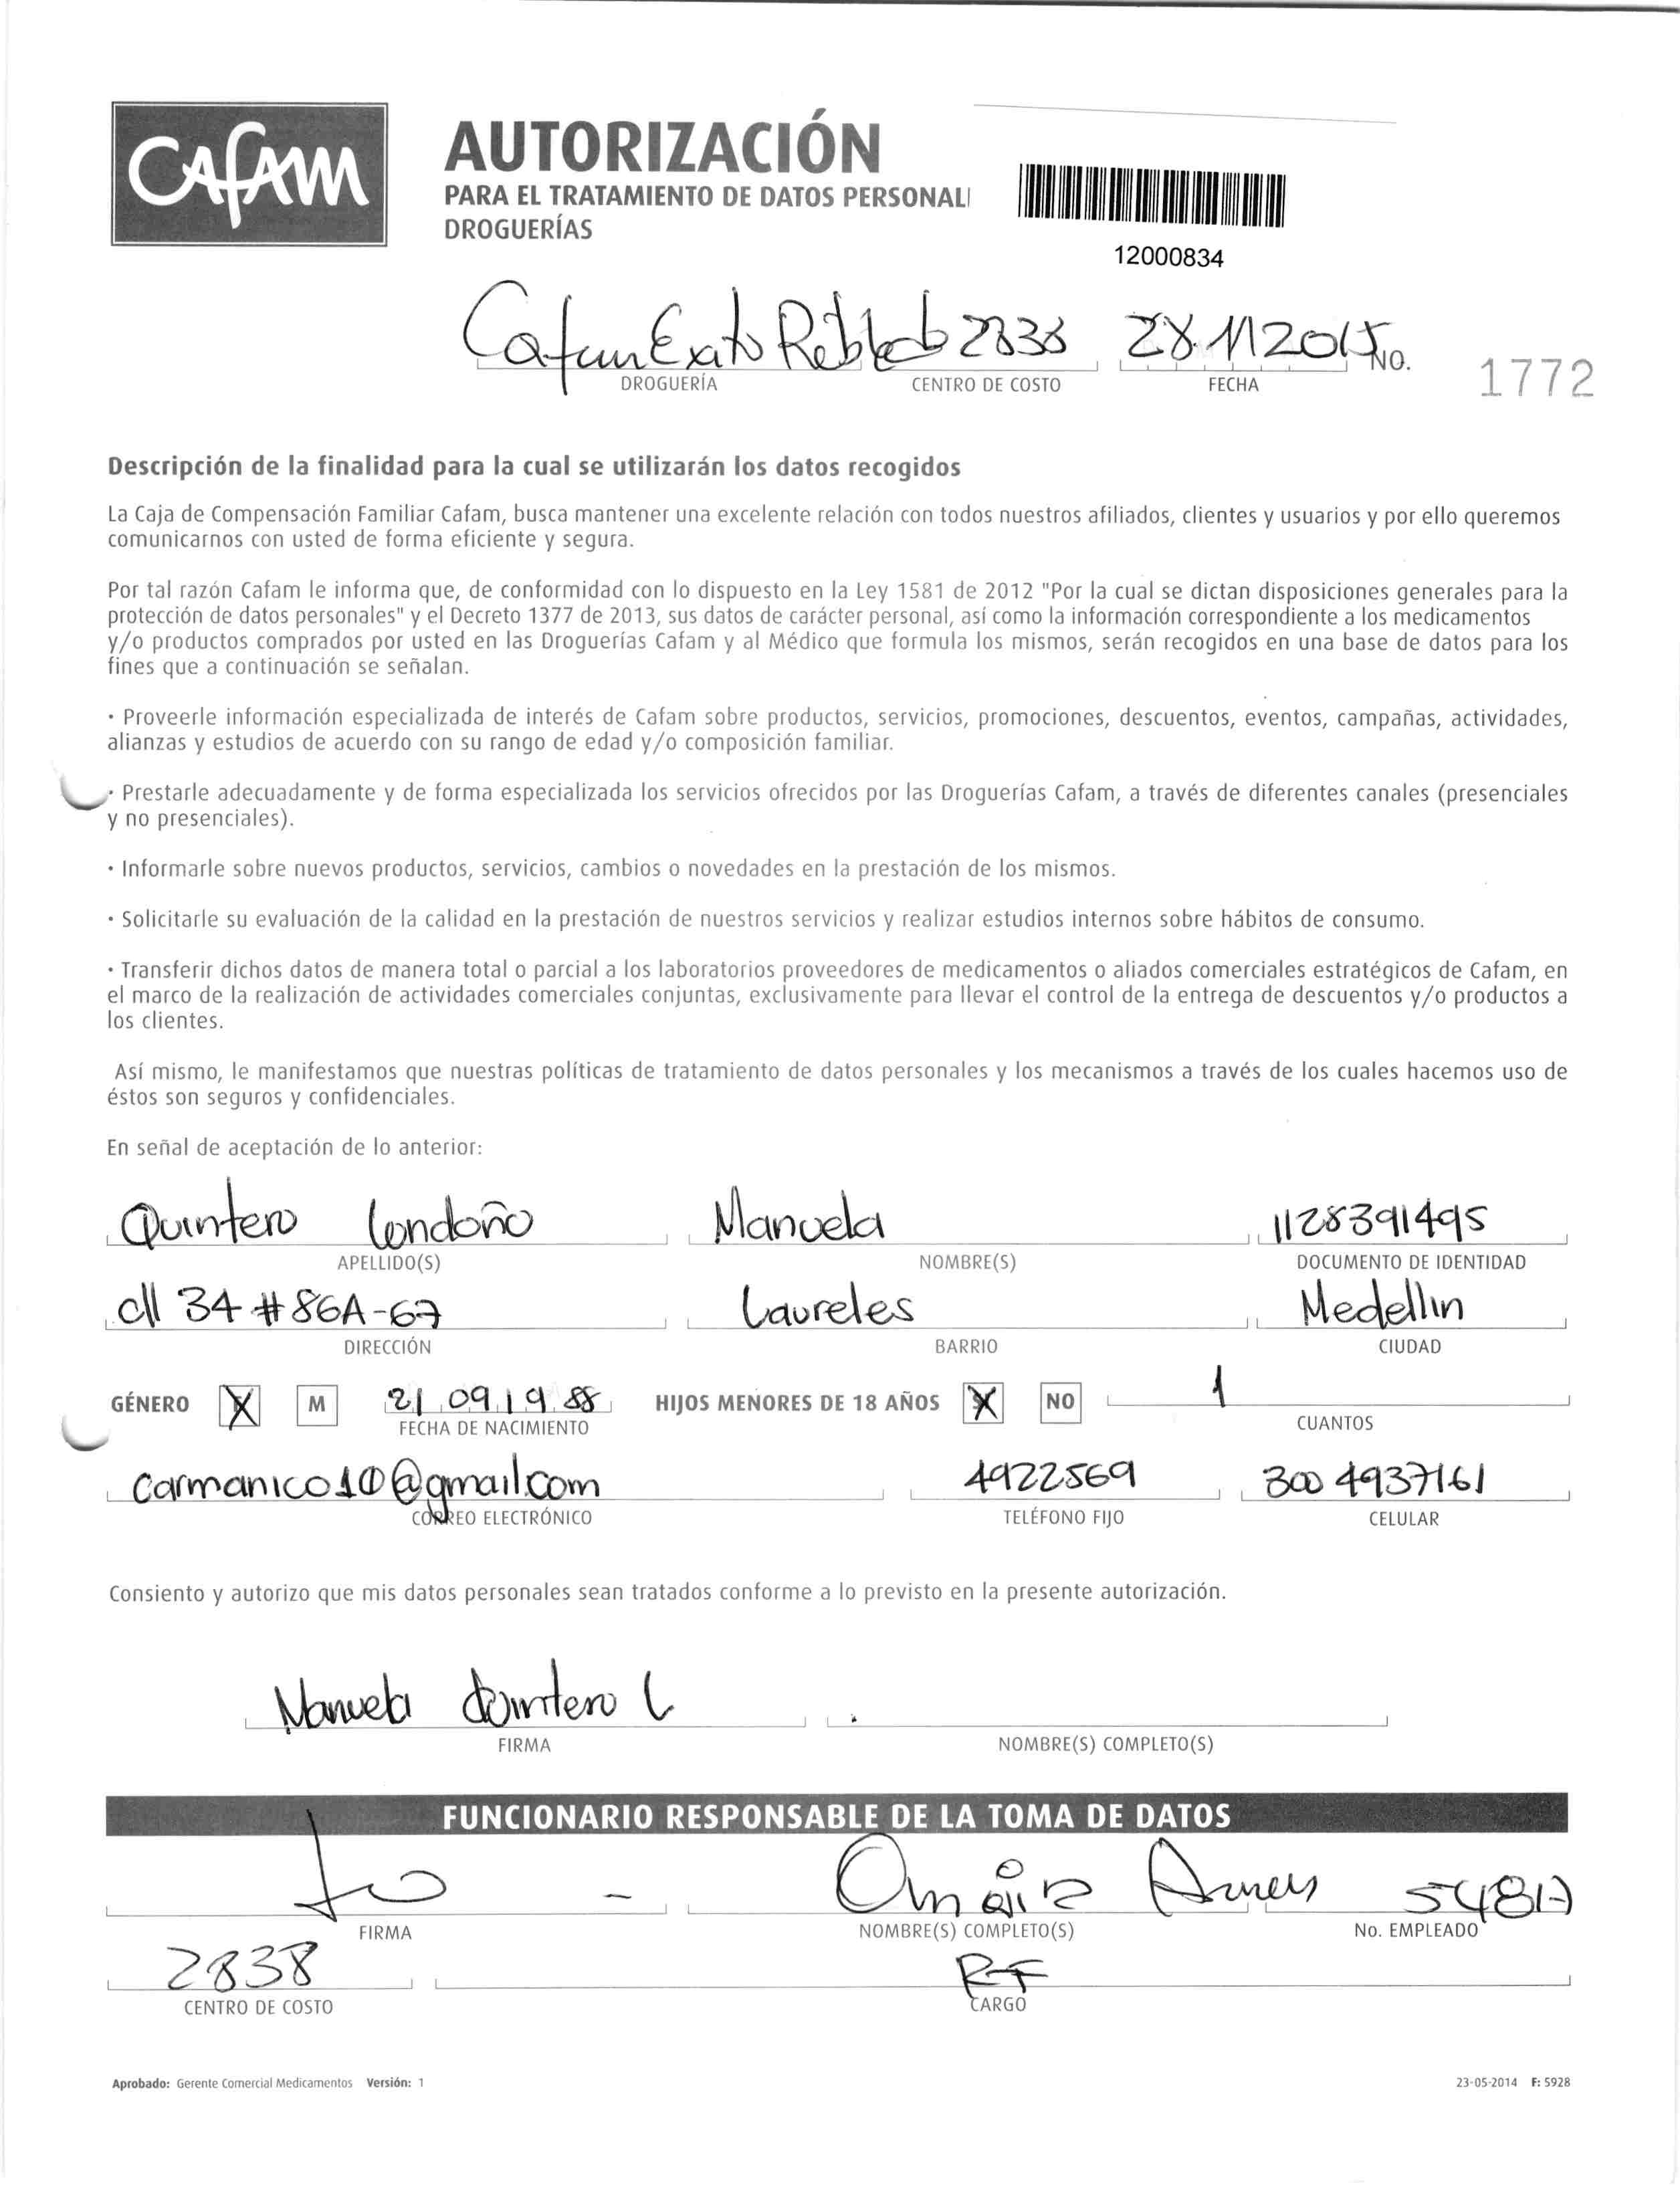 CAFAM
AUTORIZACIÓN
PARA EL TRATAMIENTO DE DATOS PERSONAL
DROGUERÍAS
12000834
Cafam Exito Robledo 2838 28 11 2015 No. 1772
DROGUERÍA CENTRO DE COSTO FECHA
Descripción de la finalidad para la cual se utilizarán los datos recogidos
La Caja de Compensación Familiar Cafam, busca mantener una excelente relación con todos nuestros afiliados, clientes y usuarios y por ello queremos
comunicarnos con usted de forma eficiente y segura.
Por tal razón Cafam le informa que, de conformidad con lo dispuesto en la Ley 1581 de 2012 "Por la cual se dictan disposiciones generales para la
protección de datos personales" y el Decreto 1377 de 2013, sus datos de carácter personal, así como la información correspondiente a los medicamentos
y/o productos comprados por usted en las Droguerías Cafam y al Médico que formula los mismos, serán recogidos en una base de datos para los
fines que a continuación se señalan.
· Proveerle información especializada de interés de Cafam sobre productos, servicios, promociones, descuentos, eventos, campañas, actividades,
alianzas y estudios de acuerdo con su rango de edad y/o composición familiar.
· Prestarle adecuadamente y de forma especializada los servicios ofrecidos por las Droguerías Cafam, a través de diferentes canales (presenciales
y no presenciales).
· Informarle sobre nuevos productos, servicios, cambios o novedades en la prestación de los mismos.
· Solicitarle su evaluación de la calidad en la prestación de nuestros servicios y realizar estudios internos sobre hábitos de consumo.
· Transferir dichos datos de manera total o parcial a los laboratorios proveedores de medicamentos o aliados comerciales estratégicos de Cafam, en
el marco de la realización de actividades comerciales conjuntas, exclusivamente para llevar el control de la entrega de descuentos y/o productos a
los clientes.
Así mismo, le manifestamos que nuestras políticas de tratamiento de datos personales y los mecanismos a través de los cuales hacemos uso de
éstos son seguros y confidenciales.
En señal de aceptación de lo anterior:
Quintero Londoño Manuela 1128391495
APELLIDO(S) NOMBRE(S) DOCUMENTO DE IDENTIDAD
cll 34 # 86A-67 Laureles Medellin
DIRECCIÓN BARRIO CIUDAD
GÉNERO X M 21 09 1988 HIJOS MENORES DE 18 AÑOS X NO 1
FECHA DE NACIMIENTO CUANTOS
carmanico10@gmail.com 4922569 300 4937161
CORREO ELECTRÓNICO TELÉFONO FIJO CELULAR
Consiento y autorizo que mis datos personales sean tratados conforme a lo previsto en la presente autorización.
Manuela Quintero L
FIRMA NOMBRE(S) COMPLETO(S)
FUNCIONARIO RESPONSABLE DE LA TOMA DE DATOS
FIRMA NOMBRE(S) COMPLETO(S) No. EMPLEADO
2838 RF
CENTRO DE COSTO CARGO
Aprobado: Gerente Comercial Medicamentos Versión: 1 23-05-2014 F: 5928